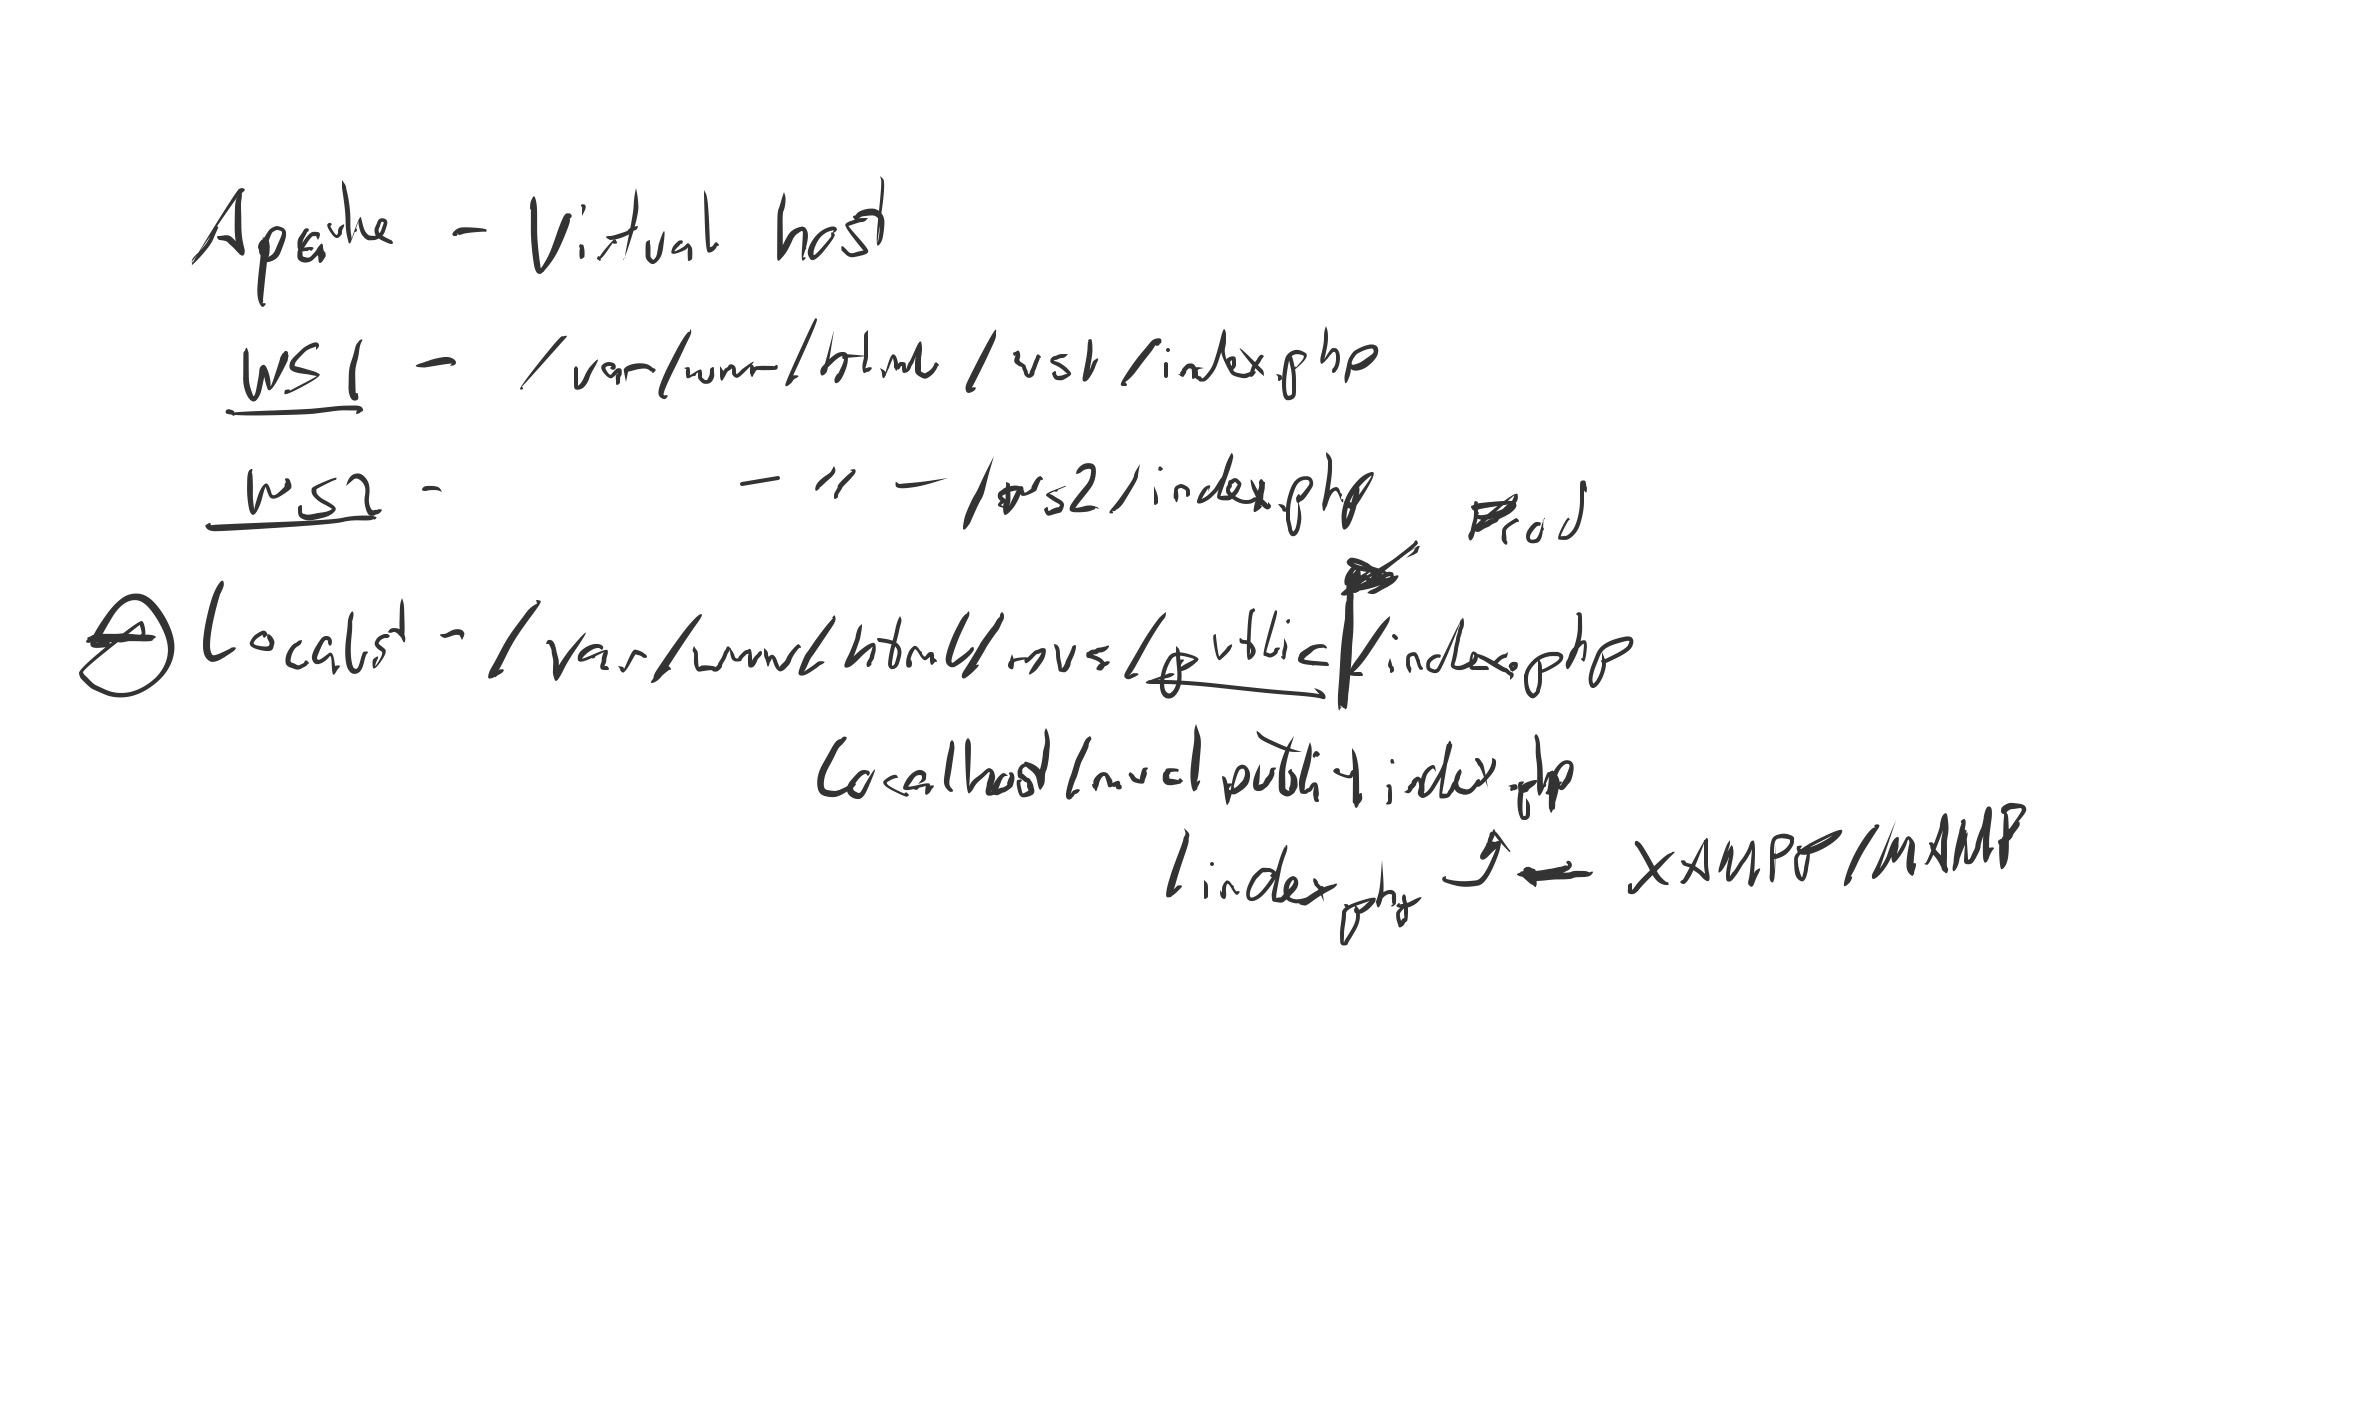 Apache - Virtual host
WS1 - /var/www/html/ws1/index.php
WS2 - - " - /ws2/index.php
Prod
Localhost - /var/www/html/mvc/public/index.php
Localhost/mvc/public/index.php
/index.php ← XAMPP/MAMP